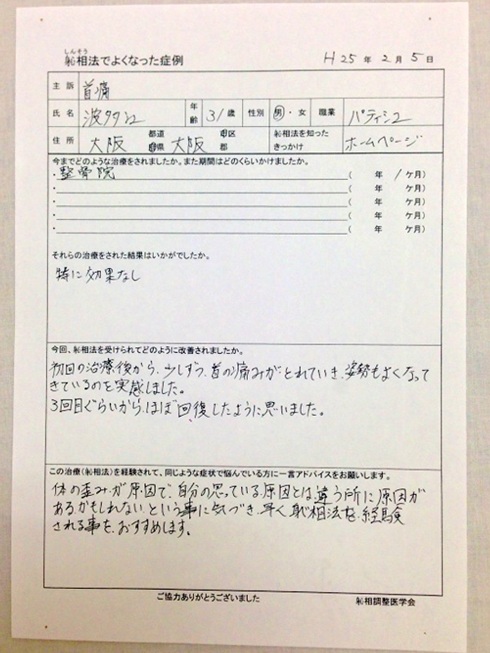 しんそう
㣺相法でよくなった症例
H 25 年 2 月 5 日
主訴 首痛
氏名 波多江 年齢 31 歳 性別 男・女 職業 パティシエ
住所 大阪 都道府県 大阪 市区郡 㣺相法を知ったきっかけ ホームページ
今までどのような治療をされましたか。また期間はどのくらいかけましたか。
・整骨院 ( 年 1ヶ月)
・ ( 年 ヶ月)
・ ( 年 ヶ月)
・ ( 年 ヶ月)
それらの治療をされた結果はいかがでしたか。
特に効果なし
今回、㣺相法を受けられてどのように改善されましたか。
初回の治療後から、少しずつ、首の痛みがとれていき、姿勢もよくなって
きているのを実感しました。
3回目ぐらいから、ほぼ回復したように思いました。
この治療(㣺相法)を経験されて、同じような症状で悩んでいる方に一言アドバイスをお願いします。
体の歪みが原因で、自分の思っている原因とは違う所に原因が
あるかもしれないという事に気づき、早く㣺相法を経験
される事を、おすすめします。
ご協力ありがとうございました
㣺相調整医学会